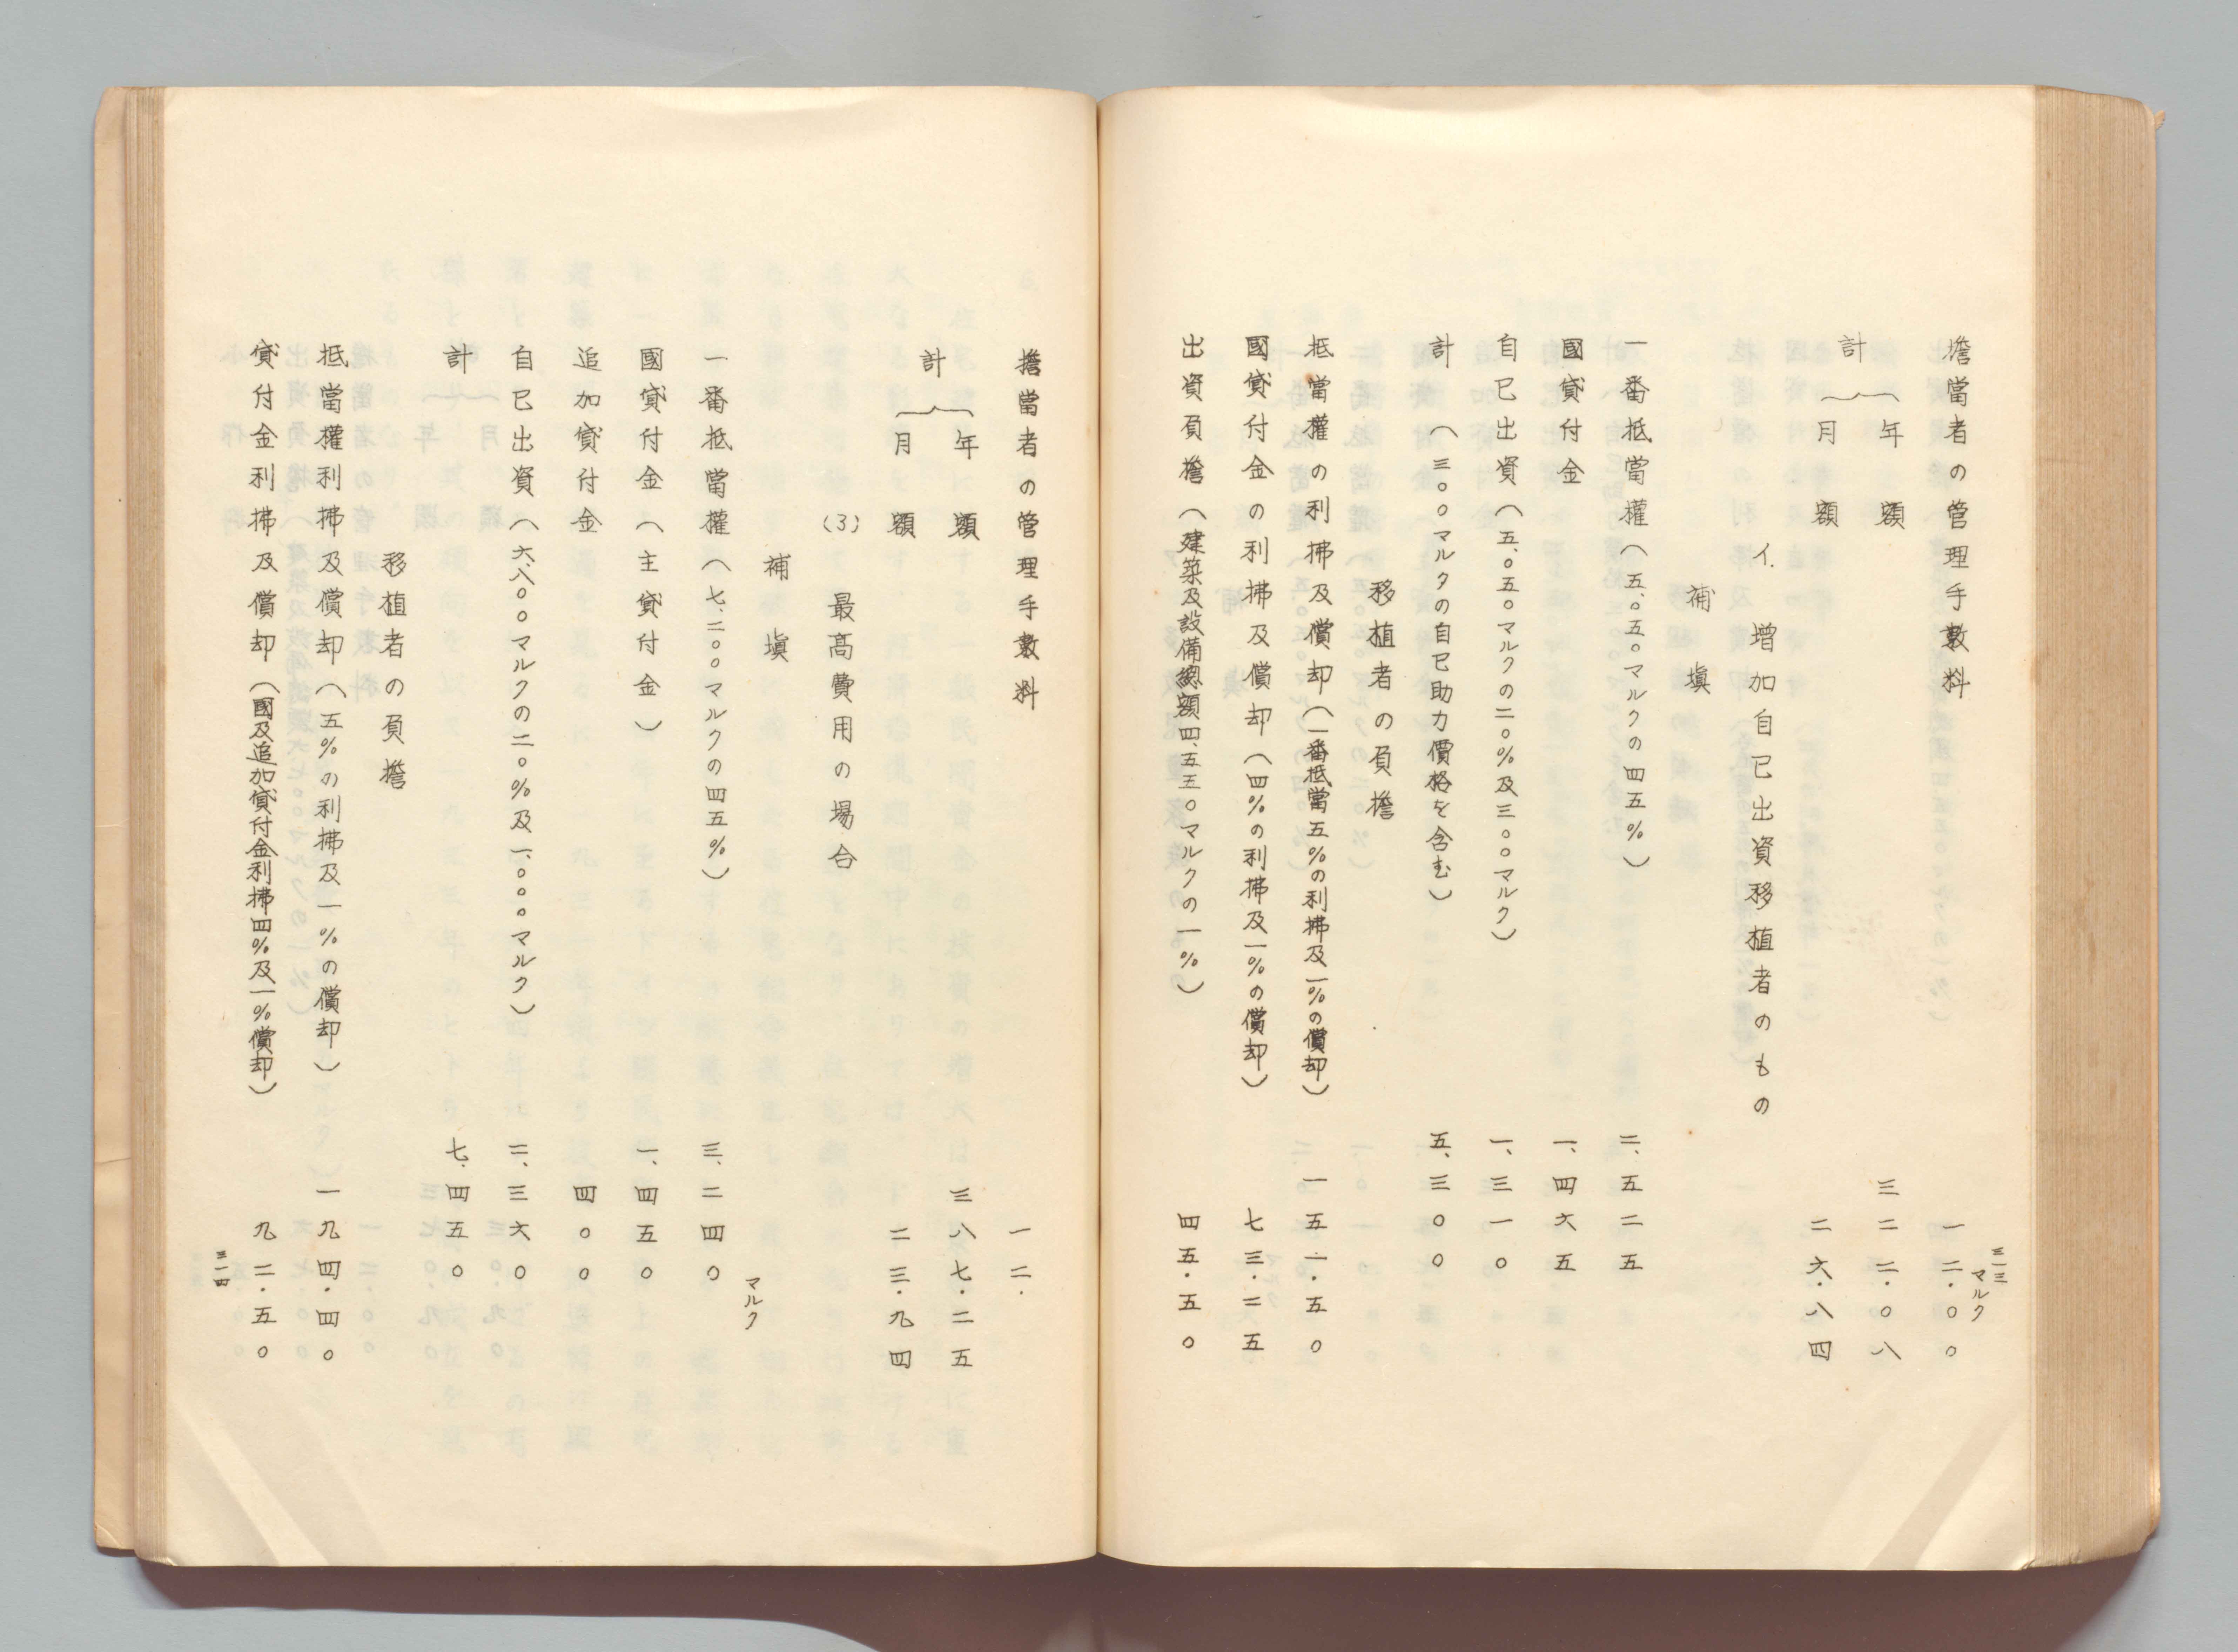 三一三
マルク
擔當者の管理手數料 一二.〇〇
計 年額 三二二.〇八
月額 二六.八四
イ. 增加自己出資移植者のもの
補塡
一番抵當權(五.〇五〇マルクの四五%) 二、五二五
國貸付金 一、四六五
自己出資(五.〇五〇マルクの二〇%及三〇〇マルク) 一、三一〇
計(三〇〇マルクの自己助力價格を含む) 五、三〇〇
移植者の負擔
抵當權の利拂及償却(一番抵當五%の利拂及一%の償却) 一五一.五〇
國貸付金の利拂及償却(四%の利拂及一%の償却) 七三.二五
出資負擔(建築及設備總額四.五五〇マルクの一%) 四五.五〇
擔當者の管理手數料 一二.
計 年額 三八七.二五
月額 二三.九四
(3) 最高費用の場合
補塡
マルク
一番抵當權(七.二〇〇マルクの四五%) 三、二四〇
國貸付金(主貸付金) 一、四五〇
追加貸付金 四〇〇
自己出資(六.八〇〇マルクの二〇%及一、〇〇〇マルク) 二、三六〇
計 七.四五〇
移植者の負擔
抵當權利拂及償却(五%の利拂及一%の償却) 一九四.四〇
貸付金利拂及償却(國及追加貸付金利拂四%及一%償却) 九二.五〇
三一四